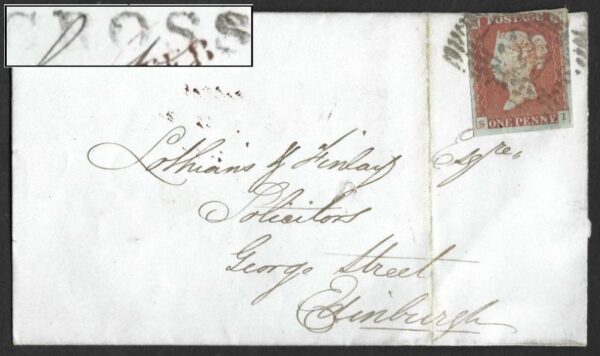 CROSS
FEB
POSTAGE
S ONE PENNY I
Lothians & Finlay Esqre,
Solicitors
George Street
Edinburgh